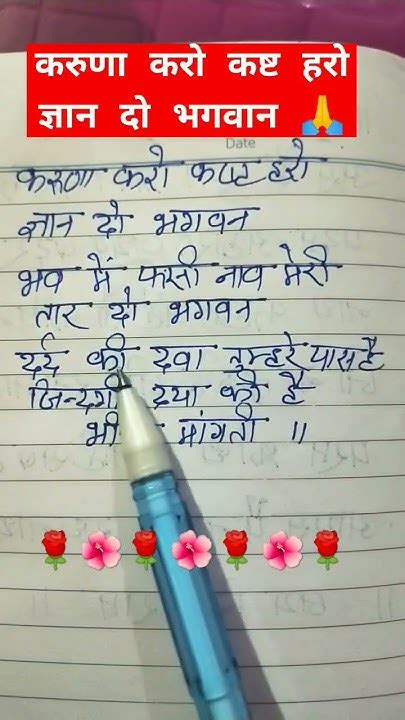 करुणा करो कष्ट हरो
ज्ञान दो भगवान 🙏
Date
करुणा करो कष्ट हरो
ज्ञान दो भगवन
भव में फसी नाव मेरी
तार दो भगवन
दर्द की दवा तुम्हरे पास है
जिन्दगी दया की है
मांगती ॥